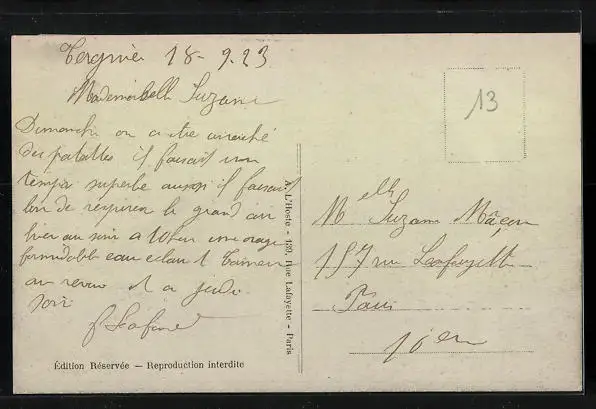 Tergnier 18-9.23
Mademoiselle Suzanne
Dimanche on a été arraché
des patattes il faisait un
temps superbe aussi il faisait
bon de respirer le grand air
hier au soir a 10 heu une orage
formidable eau eclair et tonnerre
au revoir et a jeudi
soir
Édition Réservée — Reproduction interdite
A. L'Hoste - 139, Rue Lafayette - Paris
13
Melle Suzanne Mâcon
157 rue Lafayette
Paris
10em